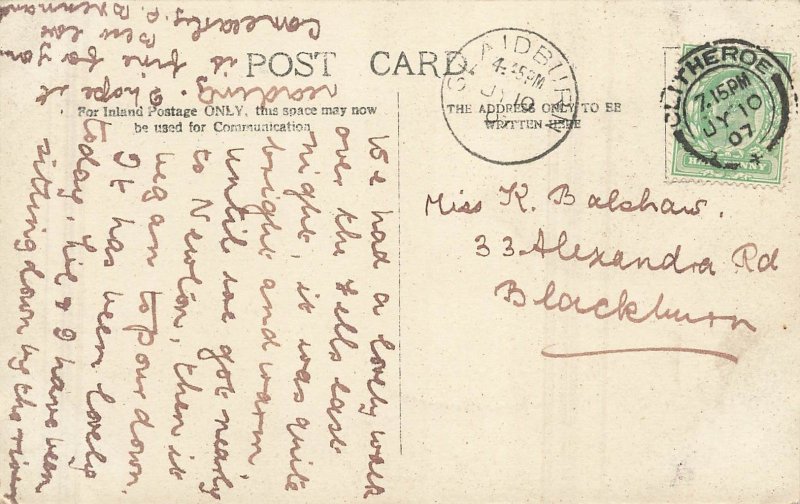 POST CARD.
For Inland Postage ONLY, this space may now
be used for Communication
THE ADDRESS ONLY TO BE
WRITTEN HERE
SLAIDBURN
4.45PM
JY 10
CLITHEROE
7.15PM
JY 10
07
HALFPENNY
Miss K. Balshaw.
33 Alexandra Rd
Blackburn
We had a lovely walk
over the fells last
night, it was quite
bright and warm
until we got nearly
to Newton, then it
began to pour down.
It has been lovely
today, & I have been
sitting down by the river
reading. I hope it
is fine for you